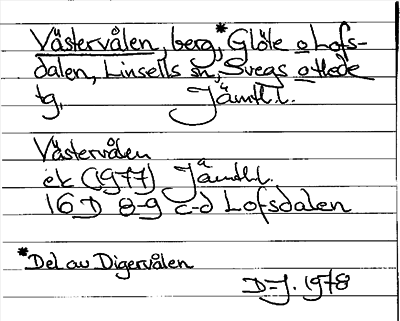 Västervålen, berg,* Glöte o Lofs-
dalen, Linsells sn, Svegs o Hede
tg, Jämtl.l.
Västervålen
ek (1977) Jämtl.l.
16D 8-9 c-d Lofsdalen
*Del av Digervålen
D-J. 1978